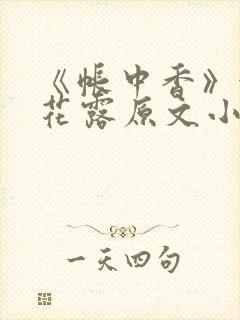 《帐中香》
花露原文小
一天四句